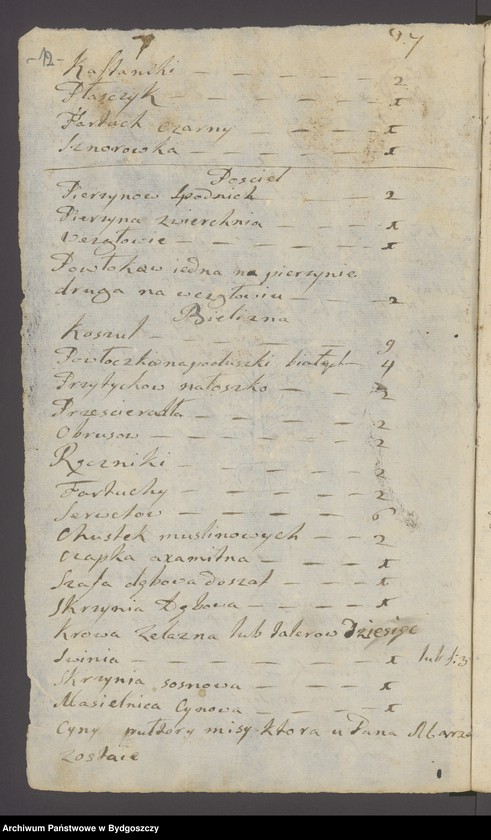 -12-
97
Kaftaniki — — — — — 2
Płaszczyk — — — — — x
Fartuch czarny — — — x
Sznorowka — — — — x
Posciel
Pierzynow Spodnich — — — 2
Pierzyna zwierchnia — — — x
Wezgłowie — — — — x
Powłokow iedna na pierzynie
druga na wezgłowiu — — — 2
Bielizna
Koszul — — — — — 9
Powłoczka na poduszki białych — 4
Przytychow na łoszko — — — 2
Przescieradła — — — — 2
Obrusow — — — — — 2
Ręczniki — — — — — 2
Fartuchy — — — — — 2
Serwetow — — — — — 6
Chustek muslinowych — — 2
Czapka axamitna — — — x
Szafa dębowa doszat — — — x
Skrzynia Dębowa — — — x
Krowa zelazna lub talerow Dziesięc
Swinia — — — — — x lub t: 3
Skrzynia sosnowa — — — x
Masielnica Cynowa — — — x
Cyny pułtory misy ktora u Pana
zostaie
Archiwum Państwowe w Bydgoszczy